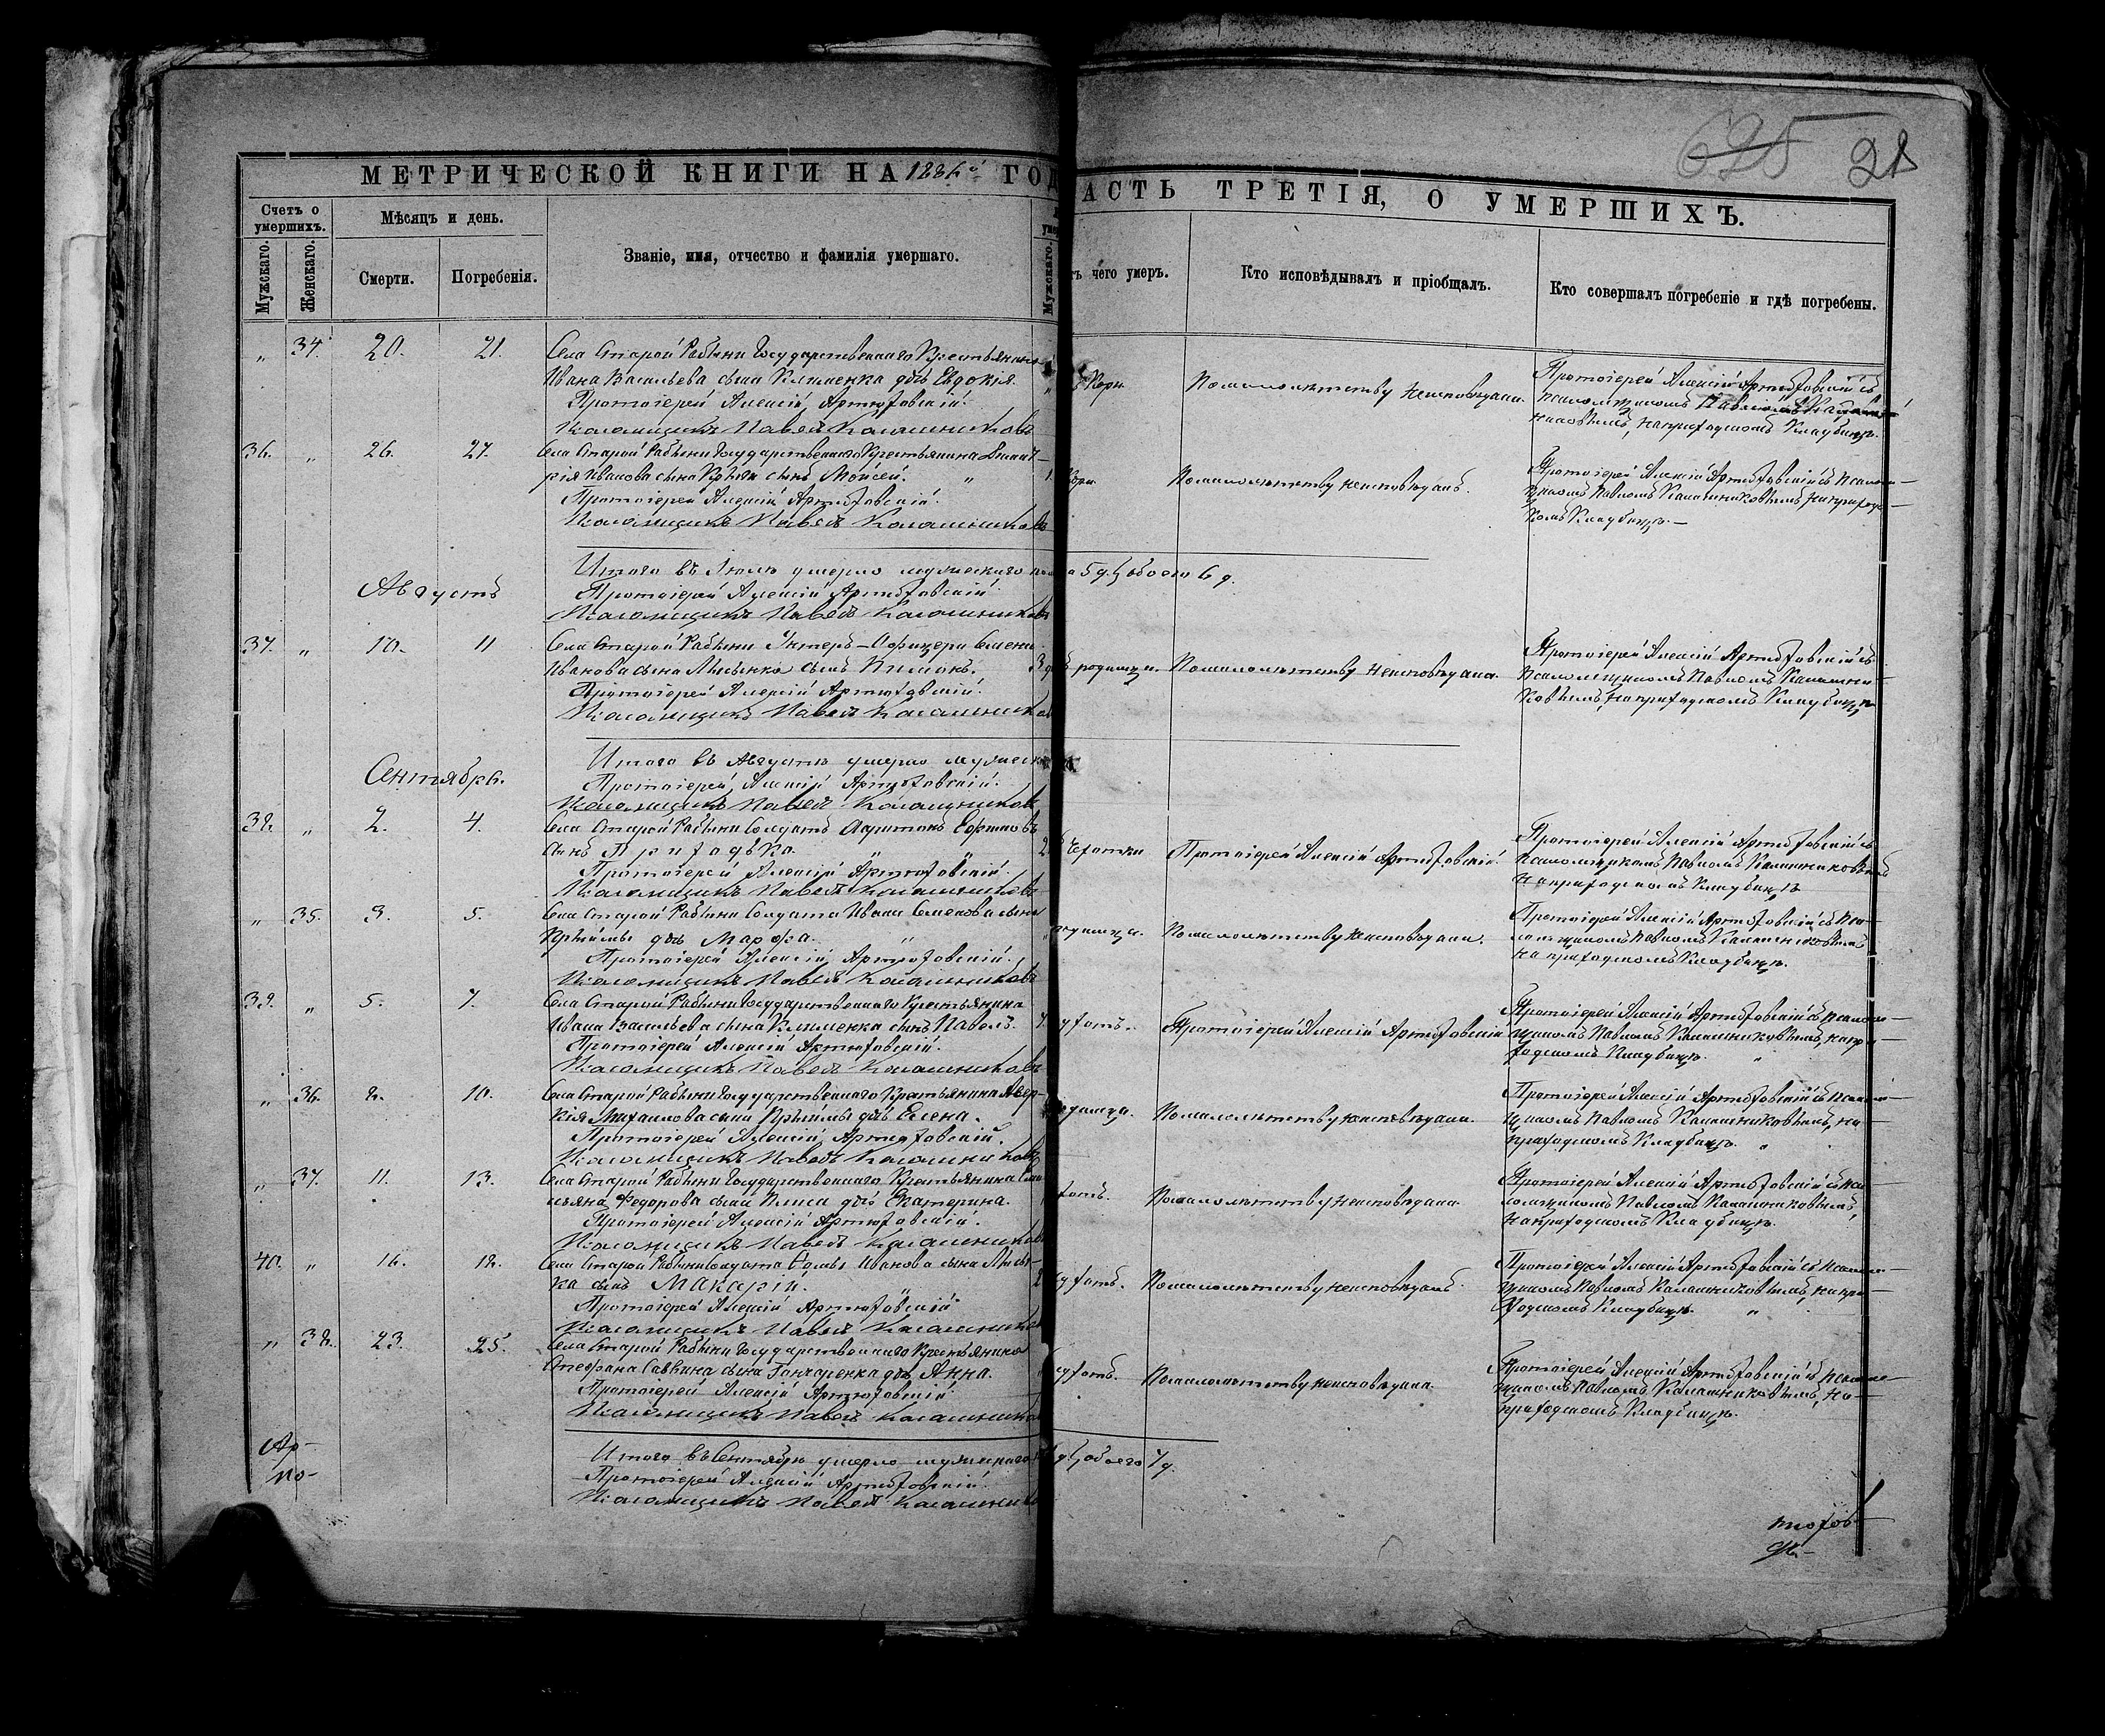 625 21
МЕТРИЧЕСКОЙ КНИГИ НА 1886й ГОД
АСТЬ ТРЕТІЯ, О УМЕРШИХЪ.
Счетъ о умершихъ.
Мужскаго.
Женскаго.
Мѣсяцъ и день.
Смерти.
Погребенія.
Званіе, имя, отчество и фамилія умершаго.
Мужскаго.
чего умеръ.
Кто исповѣдывалъ и пріобщалъ.
Кто совершалъ погребеніе и гдѣ погребены.
„ 34. 20. 21. Села Старой Рабыни Государственнаго Крестьянина
Ивана Васильева сына Клименка дчь Евдокія.
Протоіерей Алексій Артюховскій.
Псаломщикъ Павелъ Калашниковъ
Кори
По малолѣтству неисповѣдана.
Протоіерей Алексій Артюховскій съ
псаломщикомъ Павломъ
на приходскомъ кладбищѣ.
36. „ 26. 27. Села Старой Рабыни Государственнаго Крестьянина Дмит-
рія Иванова сына сынъ Моисей. „
Протоіерей Алексій Артюховскій.
Псаломщикъ Павелъ Калашниковъ
Кори
По малолѣтству неисповѣданъ.
Протоіерей Алексій Артюховскій съ псалом-
щикомъ Павломъ Калашниковымъ, на приход-
комъ кладбищѣ.—
Итого въ Іюлѣ умерло мужескаго 5 д. обоего 6 д.
Протоіерей Алексій Артюховскій
Псаломщикъ Павелъ Калашниковъ
Августъ
37. „ 10. 11 Села Старой Рабыни Унтеръ-Офицера Семена
Иванова сына сынъ Пименъ.
Протоіерей Алексій Артюховскій.
Псаломщикъ Павелъ Калашников
родимца.
По малолѣтству неисповѣдана.
Протоіерей Алексій Артюховскій съ
псаломщикомъ Павломъ Калашни-
ковымъ, на приходскомъ кладбищѣ
Итого въ Августѣ умерло мужеск
Протоіерей Алексій Артюховскій.
Псаломщикъ Павелъ Калашниковъ
Сентябрь.
38. „ 2. 4. Села Старой Рабыни Солдатъ Ефимовъ
сынъ Приходько.
Протоіерей Алексій Артюховскій.
Псаломщикъ Павелъ Калашниковъ
Чахотки
Протоіерей Алексій Артюховскій.
Протоіерей Алексій Артюховскій съ
псаломщикомъ Павломъ Калашниковымъ
на приходскомъ кладбищѣ
„ 35. 3. 5. Села Старой Рабыни Солдата Ивана Семенова сына
дчь Марфа. „
Протоіерей Алексій Артюховскій.
Псаломщикъ Павелъ Калашниковъ
родимца.
По малолѣтству неисповѣдана.
Протоіерей Алексій Артюховскій съ пса-
ломщикомъ Павломъ Калашниковымъ
на приходскомъ кладбищѣ.
39. „ 5. 7. Села Старой Рабыни Государственнаго Крестьянина
Ивана Васильева сына Клименка сынъ Павелъ.
Протоіерей Алексій Артюховскій.
Псаломщикъ Павелъ Калашниковъ
Протоіерей Алексій Артюховскій
Протоіерей Алексій Артюховскій съ псалом-
щикомъ Павломъ Калашниковымъ, на при-
ходскомъ кладбищѣ. „
„ 36. 8. 10. Села Старой Рабыни Государственнаго Крестьянина Авер-
кія Михаилова сына дчь Елена.
Протоіерей Алексій Артюховскій.
Псаломщикъ Павелъ Калашниковъ
родимца.
По малолѣтству неисповѣдана.
Протоіерей Алексій Артюховскій съ псалом-
щикомъ Павломъ Калашниковымъ, на
приходскомъ кладбищѣ. „
„ 37. 11. 13. Села Старой Рабыни Государственнаго Крестьянина
Федорова сына дчь Екатерина.
Протоіерей Алексій Артюховскій.
Псаломщикъ Павелъ Калашниковъ
По малолѣтству неисповѣдана
Протоіерей Алексій Артюховскій съ пса-
ломщикомъ Павломъ Калашниковымъ,
на приходскомъ кладбищѣ.
40. „ 16. 18. Села Старой Рабыни Солдата Иванова сына
ка сынъ Макарій.
Протоіерей Алексій Артюховскій
Псаломщикъ Павелъ Калашников
По малолѣтству неисповѣданъ.
Протоіерей Алексій Артюховскій съ псалом-
щикомъ Павломъ Калашниковымъ, на при-
ходскомъ кладбищѣ. „
„ 38. 23. 25. Села Старой Рабыни Государственнаго Крестьянина
Стефана Саввина сына Гончаренка дчь Анна.
Протоіерей Алексій Артюховскій
Псаломщикъ Павелъ Калашников
По малолѣтству неисповѣдана.
Протоіерей Алексій Артюховскій съ псалом-
щикомъ Павломъ Калашниковымъ, на
приходскомъ кладбищѣ.
Ар-
по-
Итого въ Сентябрѣ умерло мужескаго обоего 7 д.
Протоіерей Алексій Артюховскій.
Псаломщикъ Павелъ Калашников
тюхов-